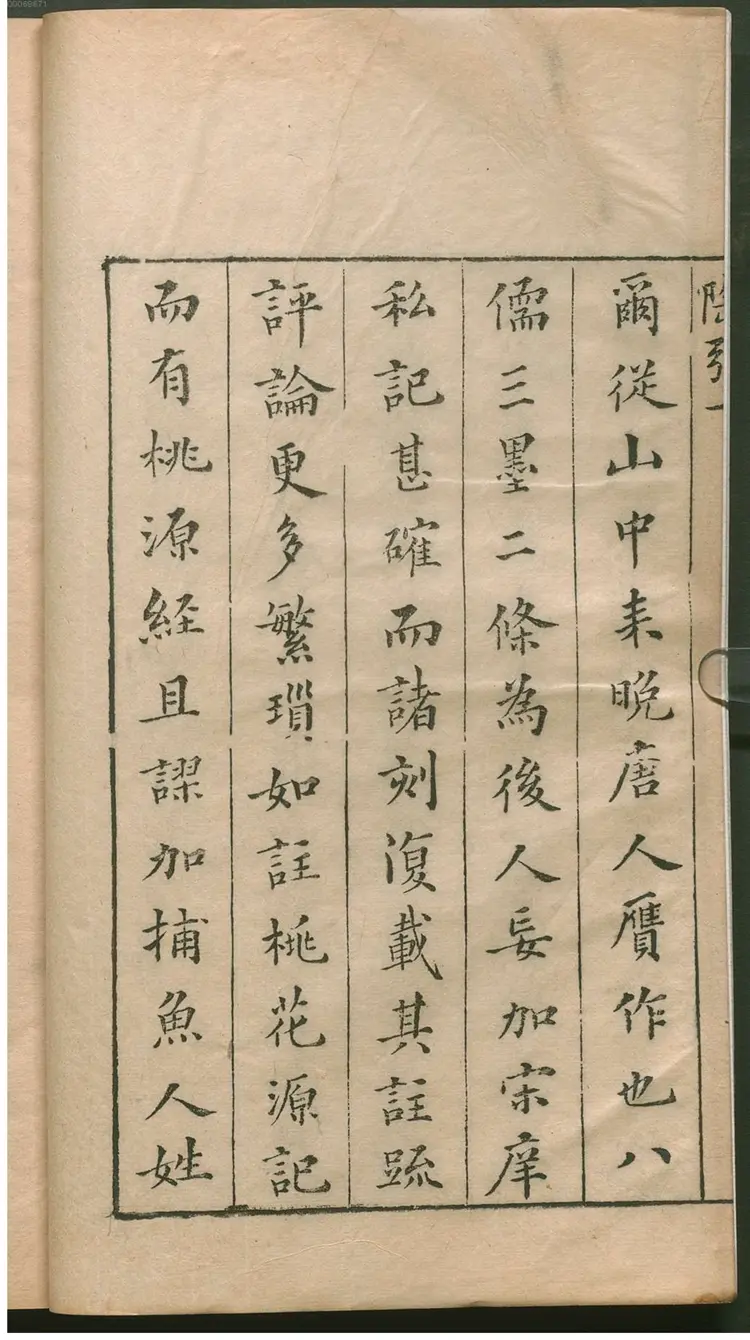 陶引一
爾從山中来晚唐人贋作也八
儒三墨二條為後人妄加宋庠
私記甚確而諸刻復載其註䟽
評論更多繁瑣如註桃花源記
而有桃源経且謬加捕魚人姓